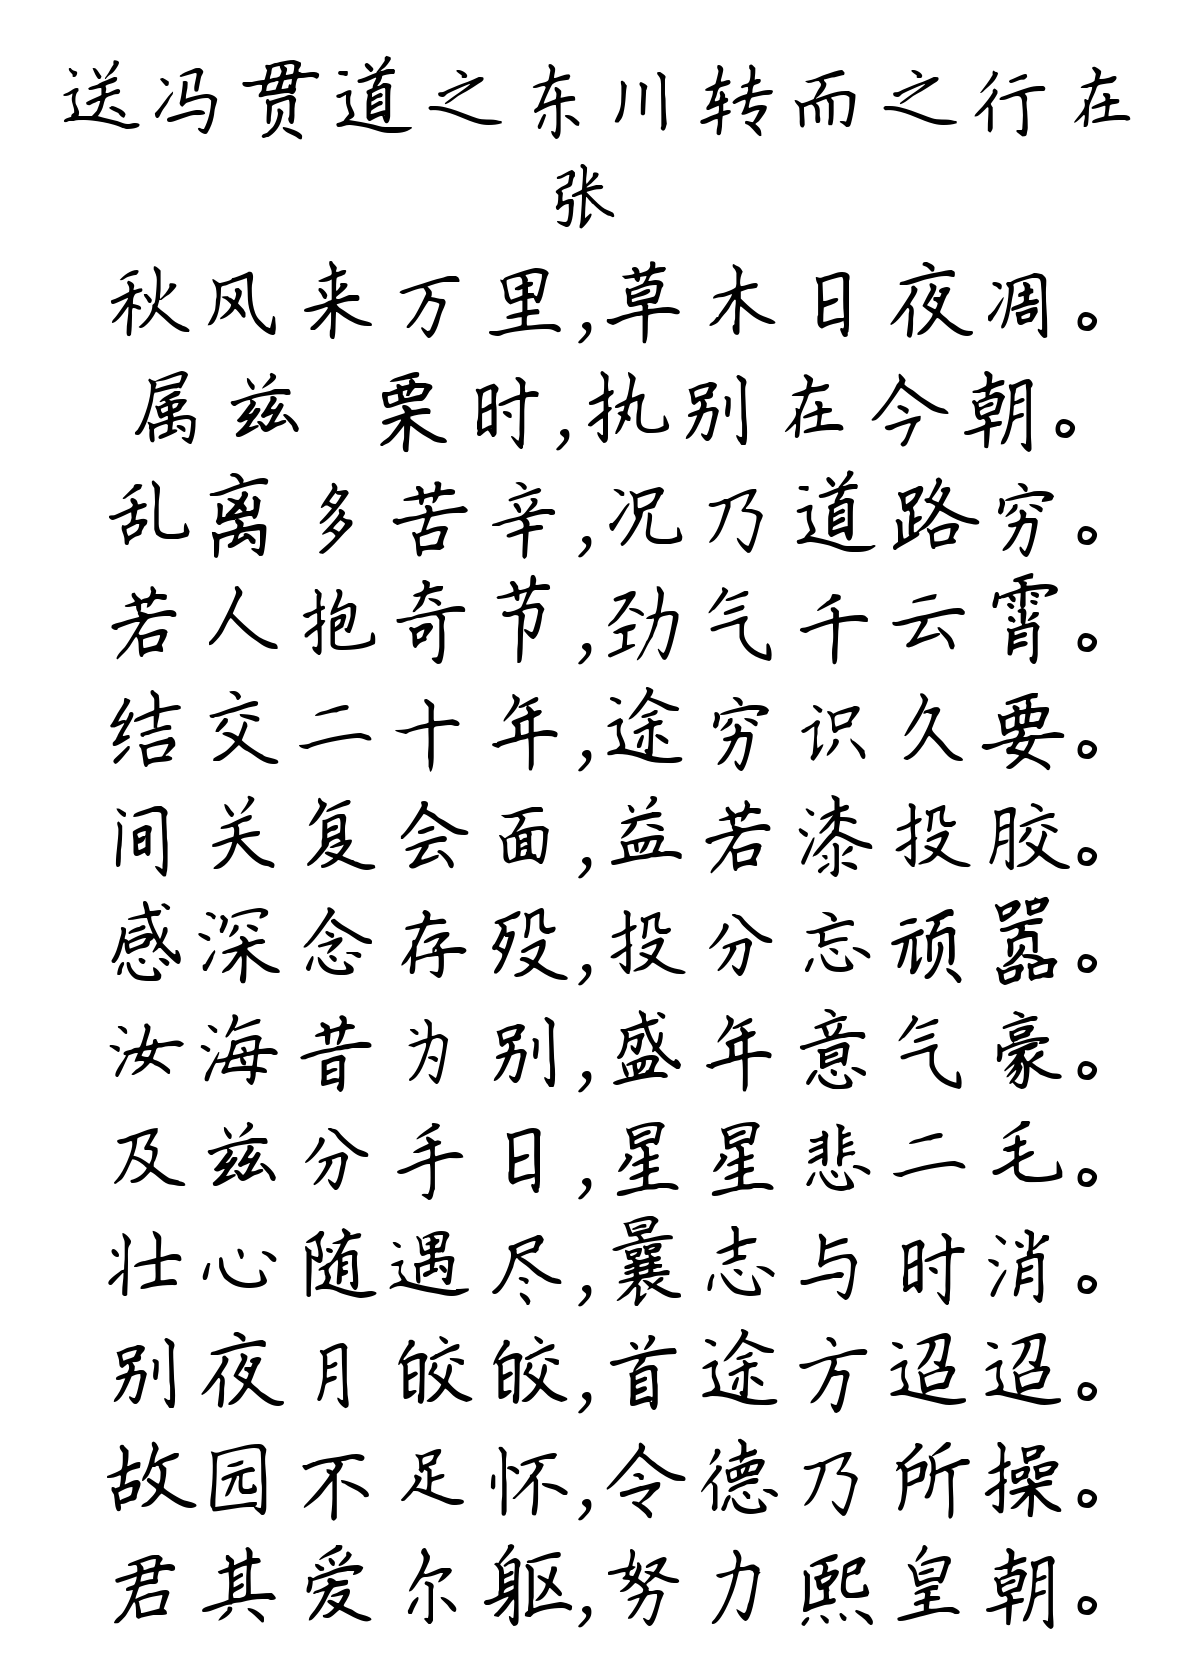 送冯贯道之东川转而之行在
张
秋风来万里,草木日夜凋。
属兹 栗时,执别在今朝。
乱离多苦辛,况乃道路穷。
若人抱奇节,劲气千云霄。
结交二十年,途穷识久要。
间关复会面,益若漆投胶。
感深念存殁,投分忘顽嚣。
汝海昔为别,盛年意气豪。
及兹分手日,星星悲二毛。
壮心随遇尽,曩志与时消。
别夜月皎皎,首途方迢迢。
故园不足怀,令德乃所操。
君其爱尔躯,努力熙皇朝。